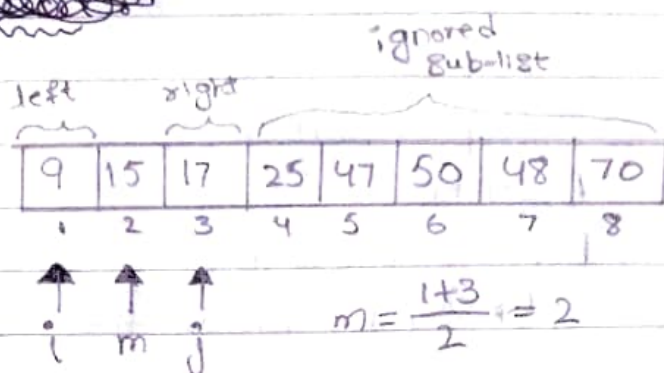 ignored
sub-list
left right
9 15 17 25 47 50 48 70
1 2 3 4 5 6 7 8
i m j m = 1+3 / 2 = 2